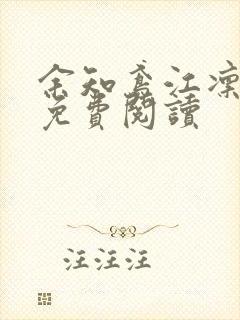 余知鸢江凛
免費閱讀
汪汪汪